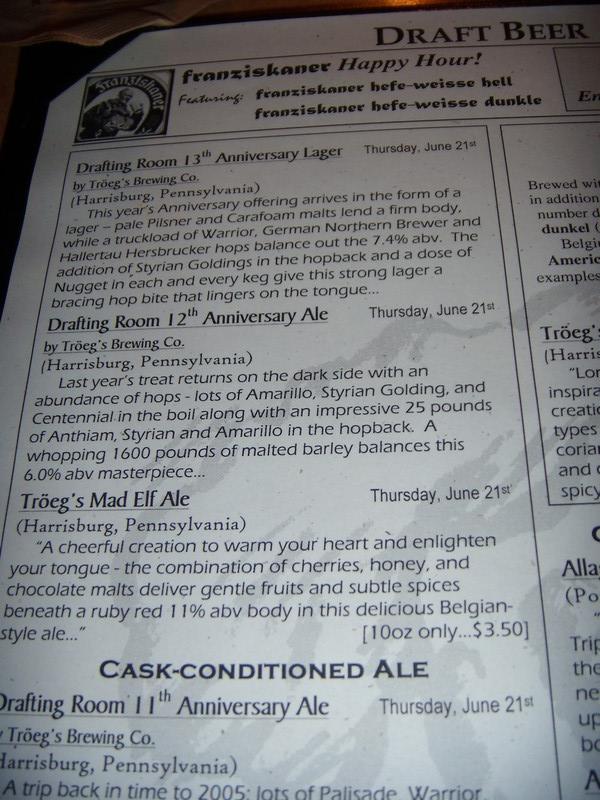 DRAFT BEER
Franziskaner
franziskaner Happy Hour!
Featuring: franziskaner hefe-weisse hell
franziskaner hefe-weisse dunkle
Drafting Room 13th Anniversary Lager Thursday, June 21st
by Tröeg's Brewing Co.
(Harrisburg, Pennsylvania)
This year's Anniversary offering arrives in the form of a
lager – pale Pilsner and Carafoam malts lend a firm body,
while a truckload of Warrior, German Northern Brewer and
Hallertau Hersbrucker hops balance out the 7.4% abv. The
addition of Styrian Goldings in the hopback and a dose of
Nugget in each and every keg give this strong lager a
bracing hop bite that lingers on the tongue...
Drafting Room 12th Anniversary Ale Thursday, June 21st
by Tröeg's Brewing Co.
(Harrisburg, Pennsylvania)
Last year's treat returns on the dark side with an
abundance of hops - lots of Amarillo, Styrian Golding, and
Centennial in the boil along with an impressive 25 pounds
of Anthiam, Styrian and Amarillo in the hopback. A
whopping 1600 pounds of malted barley balances this
6.0% abv masterpiece...
Tröeg's Mad Elf Ale Thursday, June 21st
(Harrisburg, Pennsylvania)
"A cheerful creation to warm your heart and enlighten
your tongue - the combination of cherries, honey, and
chocolate malts deliver gentle fruits and subtle spices
beneath a ruby red 11% abv body in this delicious Belgian-
style ale..." [10oz only...$3.50]
CASK-CONDITIONED ALE
Drafting Room 11th Anniversary Ale Thursday, June 21st
y Tröeg's Brewing Co.
Harrisburg, Pennsylvania)
A trip back in time to 2005: lots of Palisade, Warrior
En
Brewed wit
in addition
number d
dunkel (
Belgi
Americ
examples
Tröeg's
(Harris
"Lor
inspira
creatic
types
corian
and c
spicy
Alla
(Po
Trip
the
ne
up
bo